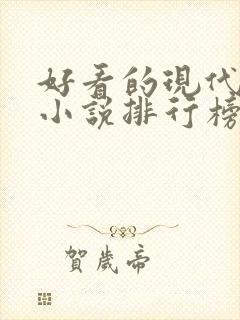 好看的現代
小說排行榜
賀歲帝